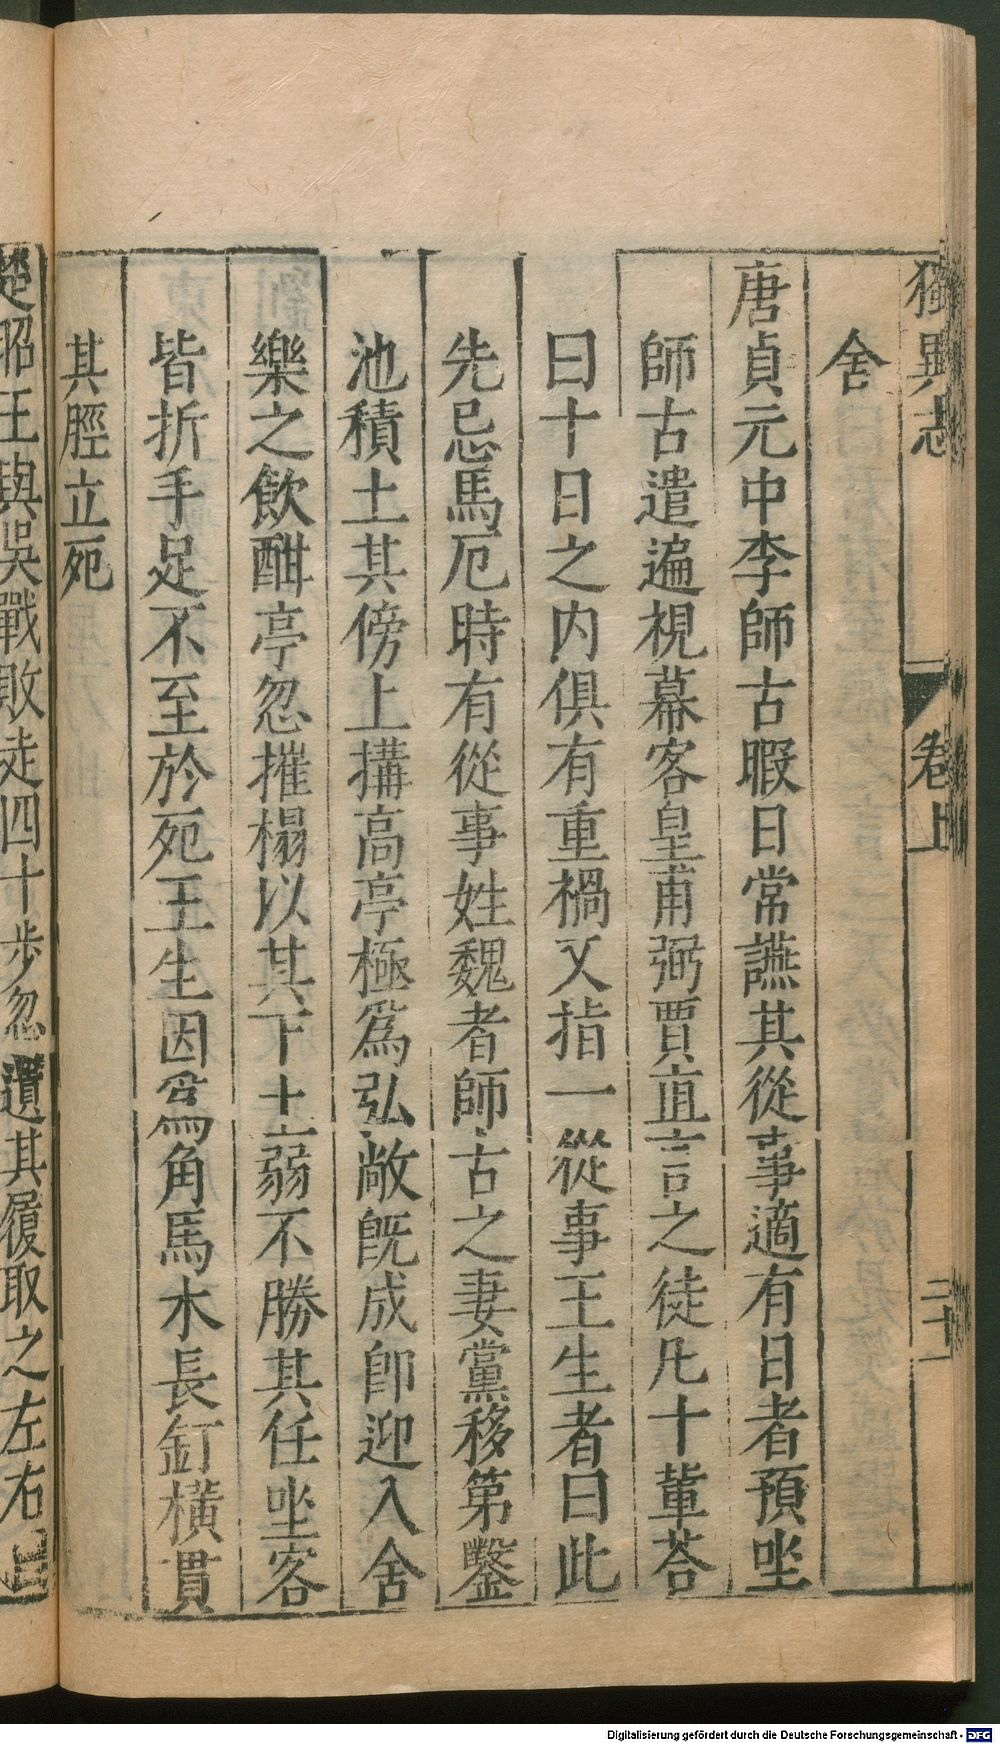 獨異志
卷上
二十一
舍
唐貞元中李師古暇日常讌其從事適有日者預坐
師古遣遍視幕客皇甫弼賈直言之徒凡十輩荅
曰十日之内俱有重禍又指一從事王生者曰此
先忌馬厄時有從事姓魏者師古之妻黨移第鑿
池積土其傍上搆高亭極爲弘敞旣成卽迎入舍
樂之飲酣亭忽摧榻以其下土弱不勝其任坐客
皆折手足不至於死王生因爲角馬木長釘橫貫
其脛立死
楚昭王與吳戰敗走四十步忽遺其履取之左右曰
Digitalisierung gefördert durch die Deutsche Forschungsgemeinschaft - DFG